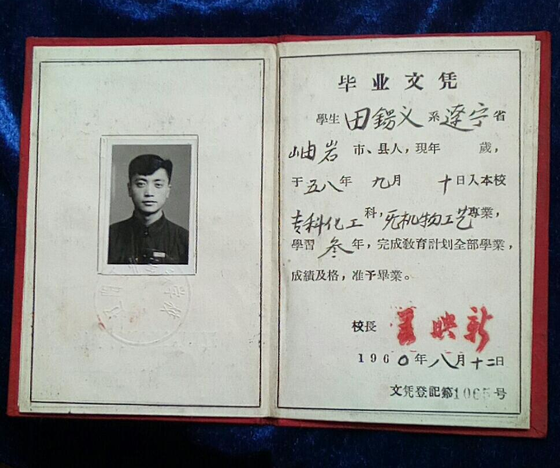 毕业文凭
學生 田錫义 系 遼宁 省
岫岩 市、县人，現年 歲，
于五八年 九月 十日入本校
专科化工科，死机物工艺專業，
學習 叁年，完成敎育計划全部學業，
成績及格，准予畢業。
校長 姜映新
1960年八月十二日
文凭登記第1065号